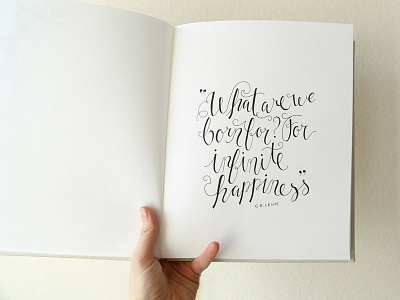 "What are we
born for? For
infinite
happiness"
C.S. LEWIS